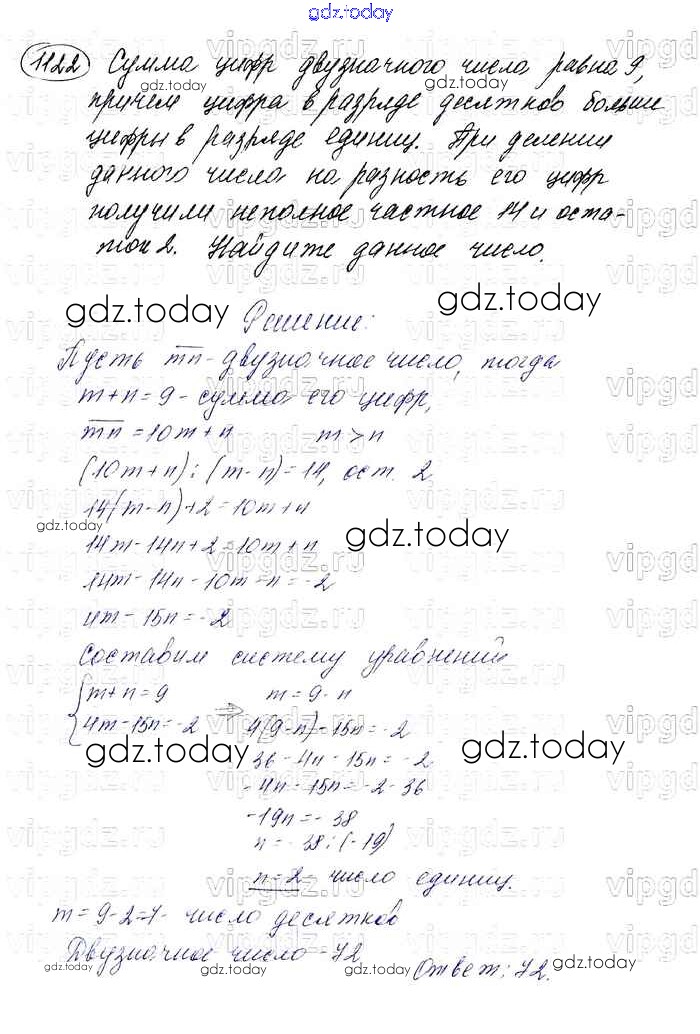 gdz.today
1122 Сумма цифр двузначного числа равна 9,
причем цифра в разряде десятков больше
цифры в разряде единиц. При делении
данного числа на разность его цифр
получили неполное частное 14 и оста-
ток 2. Найдите данное число.
Решение:
Пусть mn - двузначное число, тогда
m+n=9 - сумма его цифр,
mn = 10m+n m>n
(10m+n):(m-n)=14, ост. 2
14(m-n)+2=10m+n
14m-14n+2=10m+n
14m-14n-10m=n=-2
4m-15n=-2
Составим систему уравнений
{m+n=9 m=9-n
{4m-15n=-2 ⇒ 4(9-n)-15n=-2
36-4n-15n=-2
-4n-15n=-2-36
-19n=-38
n=-38:(-19)
n=2- число единиц.
m=9-2=7- число десятков
Двузначное число -72
Ответ: 72.
gdz.today
vipgdz.ru